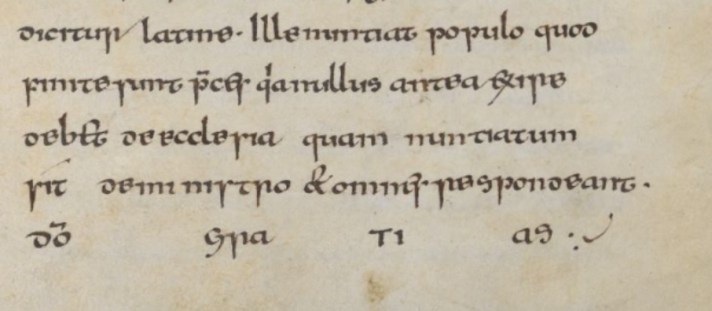 dicitur latine. Ille nuntiat populo quod
finite sunt p̄ces q̄a nullus antea exire
debet de ecclesia quam nuntiatum
sit de ministro & omnes respondeant.
dō gra ti as